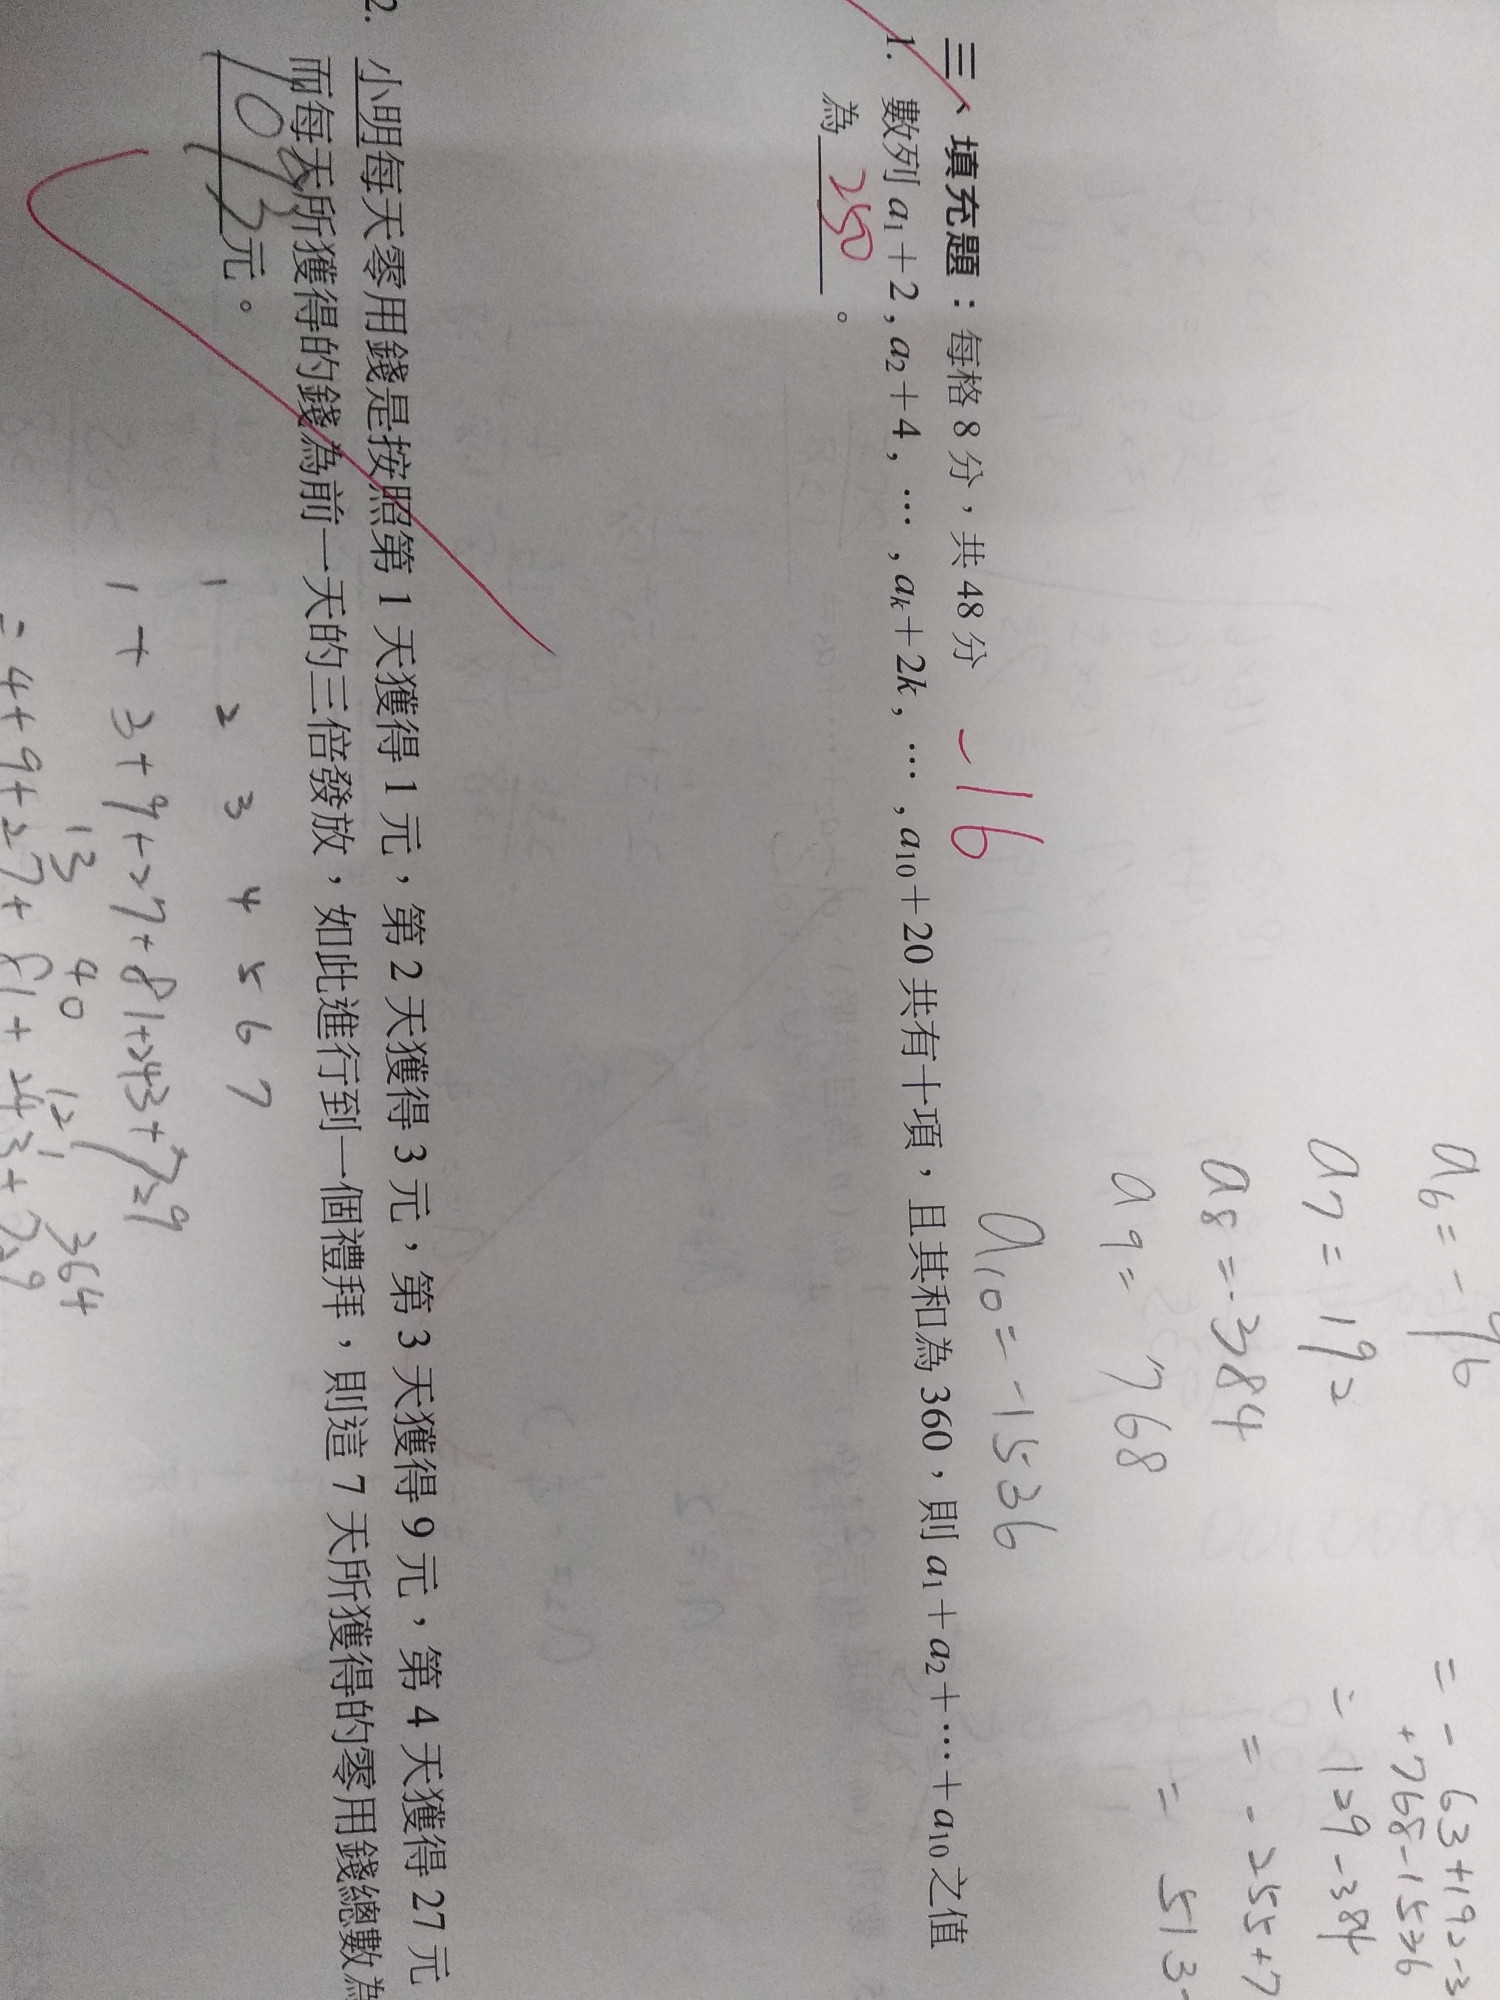 a₆=-96
a₇=192
a₈=-384
a₉=768
a₁₀=-1536
=-63+192-3
+768-1536
=129-384
=-255+7
=513-
三、填充題：每格 8 分，共 48 分 -16
1. 數列 a₁+2, a₂+4, …, aₖ+2k, …, a₁₀+20 共有十項，且其和為 360，則 a₁+a₂+…+a₁₀ 之值
為 250 。
2. 小明每天零用錢是按照第 1 天獲得 1 元，第 2 天獲得 3 元，第 3 天獲得 9 元，第 4 天獲得 27 元
而每天所獲得的錢為前一天的三倍發放，如此進行到一個禮拜，則這 7 天所獲得的零用錢總數為
1093 元。
1 2 3 4 5 6 7
1+3+9+27+81+243+729
13 40 121 364
=4+9+27+81+243+729